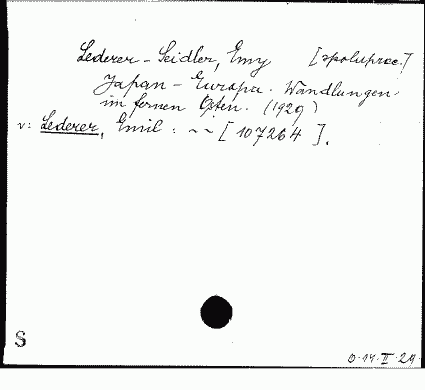 Lederer-Seidler, Emy [spoluprac.]
Japan - Europa. Wandlungen
im fernen Osten. (1929)
v: Lederer, Emil: ~~ [107264].
S
0-14-II-29.